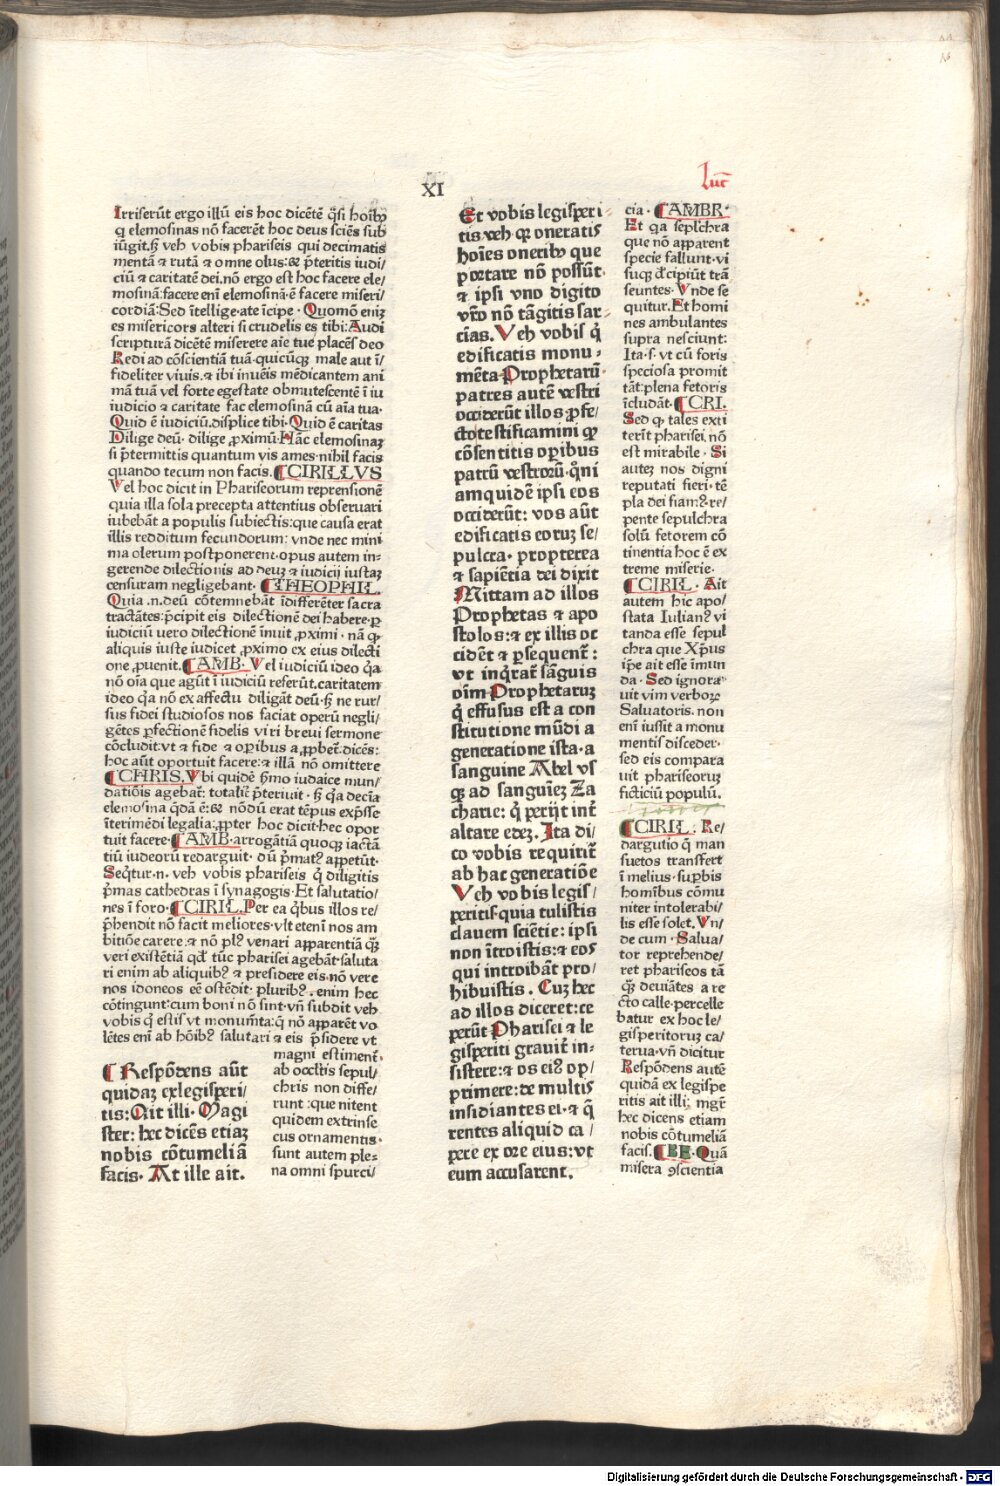 XI
Luc̄
Irriserūt ergo illū eis hoc dicētē q̄si hoibꝰ
q elemosinas nō facerēt hoc deus sciēs sub
iūgit. ꝫ veh vobis phariseis qui decimatis
mentā ⁊ rutā ⁊ omne olus: ⁊ p̄teritis iudi/
ciū ⁊ caritatē dei. nō ergo est hoc facere ele/
mosinā: facere enī elemosinā ē facere miseri/
cordiā: Sed ītellige. ate īcipe. Quomō eniꝫ
es misericors alteri si crudelis es tibi: Audi
scripturā dicētē miserere aīe tue placēs deo
Redi ad cōscientiā tuā quicūqꝫ male aut ī/
fideliter viuis. ⁊ ibi inuēis mēdicantem ani
mā tuā vel forte egestate obmutescentē ī iu
iudicio ⁊ caritate fac elemosinā cū aīa tua.
Quid ē iudiciū. displice tibi. Quid ē caritas
Dilige deū. dilige ꝓximū. Hāc elemosinaꝫ
si p̄termittis quantum vis ames. nihil facis
quando tecum non facis. ¶CIRILLVS
Vel hoc dicit in Phariseorum reprensionē
quia illa sola precepta attentius obseruari
iubebāt a populis subiectis: que causa erat
illis redditum fecundorum: vnde nec mini
ma olerum postponerent. opus autem in-
gerende dilectionis ad deuꝫ ⁊ iudicij iustaꝫ
censuram negligebant. ¶THEOPHIL.
Quia .n. deū cōtemnebāt īdifferēter sacra
tractātes: p̄cipit eis dilectionē dei habere. ꝑ
iudiciū vero dilectionē īnuit ꝓximi. nā qͥ
aliquis iuste iudicet ꝓximo ex eius dilecti
one ꝓuenit. ¶AMB. Vel iudiciū ideo qͣa
nō oīa que agūt ī iudiciū referūt. caritatem
ideo qͣa nō ex affectu diligāt deū. ꝫ ne rur/
sus fidei studiosos nos faciat operū negli/
gētes ꝑfectionē fidelis viri breui sermone
cōcludit: vt ⁊ fide ⁊ oꝑibus a ꝓbeť. dicēs:
hoc aūt oportuit facere: ⁊ illā nō omittere
¶CHRIS. Vbi quidē ꝫmo iudaice mun/
dationis agebať: totalit̄ p̄teriuit. ꝫ qͣa decīa
elemosina q̄dā ē: ⁊ nōdū erat tēpus exp̄sse
īterimēdi legalia: ꝓpter hoc dicit. hec opor
tuit facere. ¶AMB. arrogātiā quoqꝫ iactā
tiū iudeorū redarguit. dū p̄matꝰ appetūt.
Seq̄tur .n. veh vobis phariseis qͥ diligitis
p̄mas cathedras ī synagogis. Et salutatio/
nes ī foro. ¶CIRIL. Per ea q̄bus illos re/
p̄hendit nō facit meliores. vlt etenī nos am
bitiōe carere: ⁊ nō plꝰ venari apparentiā qͣꝫ
veri existētiā qd̄ tūc pharisei agebāt. saluta
ri enim ab aliquibꝰ ⁊ presidere eis. nō vere
nos idoneos eē ostēdit. pluribꝰ. enim hec
cōtingunt: cum boni nō sint. vn̄ subdit veh
vobis qͥ estis vt monumēta: q̄ nō apparēt vo
lētes enī ab hōibꝰ salutari ⁊ eis p̄sidere vt
magni estiment̄.
ab occltis sepul/
chris non diffe/
runt: que nitent
quidem extrinse
cus ornamentis.
sunt autem ple-
na omni spurci/
¶ Respōdens aūt
quidaꝫ ex legisperi/
tis: Ait illi. Magi
ster: hec dicēs etiaꝫ
nobis cōtumeliā
facis. At ille ait.
Et vobis legisperi-
tis veh. qꝛ oneratis
hoīes oneribꝰ que
portare nō possūt.
⁊ ipsi vno digito
vr̄o nō tāgitis sar-
cīas. Veh vobis qͥ
edificatis monu-
mēta Prophetarū.
patres autē vestri
occiderūt illos: ꝓfe/
cto testificamini qꝙ
cōsentitis oꝑibus
patrū vestrorū. qͥ̄ni
am quidē ipsi eos
occiderūt: vos aūt
edificatis eoruꝫ se/
pulcra. propterea
⁊ sapiētia dei dixit
Mittam ad illos
Prophetas ⁊ apo
stolos: ⁊ ex illis oc
cidēt ⁊ ꝑsequent̄:
vt inqͥrat̄ sāguis
oīm Prophetaruꝫ
qͥ effusus est a con
stitutione mūdi a
generatione ista. a
sanguine Abel vs
qꝫ ad sanguieꝫ Za
charie: qͥ perijt int̄
altare edeꝫ. Ita di/
co vobis requirit̄
ab hac generatiōe
Veh vobis legis/
peritis. quia tulistis
clauem sciētie: ipsi
non ītroistis: ⁊ eos
qui introibāt pro/
hibuistis. Cuꝫ hec
ad illos diceret: ce
perūt Pharisei ⁊ le
gisperiti grauit̄ in-
sistere: ⁊ os eiꝰ op/
primere: de multis
insidiantes ei. ⁊ q̄
rentes aliquid ca/
pere ex ore eius: vt
eum accusarent.
cia. ¶AMBR.
Et qͣa seplchra
que nō apparent
specie fallunt. vi
suqꝫ d̄cipiūt trā
seuntes. Vnde se
quitur. Et homi
nes ambulantes
supra nesciunt:
Ita .s. vt cū foris
speciosa promit
tāt: plena fetoris
īcludāt. ¶CRI.
Sed qꝙ tales exti
terīt pharisei. nō
est mirabile. Si
auteꝫ nos digni
reputati fieri. tē
pla dei fiamꝰ. re/
pente sepulchra
solū fetorem cō
tinentia hoc ē ex
treme miserie.
¶CIRIL. Ait
autem hic apo/
stata Iulianꝰ vi
tanda esse sepul
chra que Xp̄us
ip̄e ait esse īmun
da. Sed ignora
uit vim verboꝝ
Saluatoris. non
enī iussit a monu
mentis discedeř.
sed eis compara
uit phariseoruꝫ
ficticiū populū.
¶CIRIL. Re/
dargutio q̄ man
suetos transfert
ī melius. suꝑbis
hominibus cōmu
niter intolerabi/
lis esse solet. Vn/
de cum Salua/
tor reprehende/
ret phariseos tā
qͣꝫ deuiātes a re
cto calle. percelle
batur ex hoc le/
gisperitoruꝫ ca/
terua. vn̄ dicitur
Respōdens autē
quidā ex legispe
ritis ait illi: mgr̄
hec dicens etiam
nobis cōtumeliā
facis. ¶BE. Quā
misera ꝯscientia
Digitalisierung gefördert durch die Deutsche Forschungsgemeinschaft - DFG